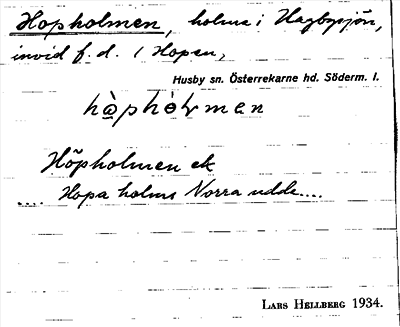 Hopholmen, holme i Hagbysjön,
invid f.d. l Hopen,
Husby sn. Österrekarne hd. Söderm. l.
Höpholmen ek
.... Hopa holms Norra udde....
LARS HELLBERG 1934.